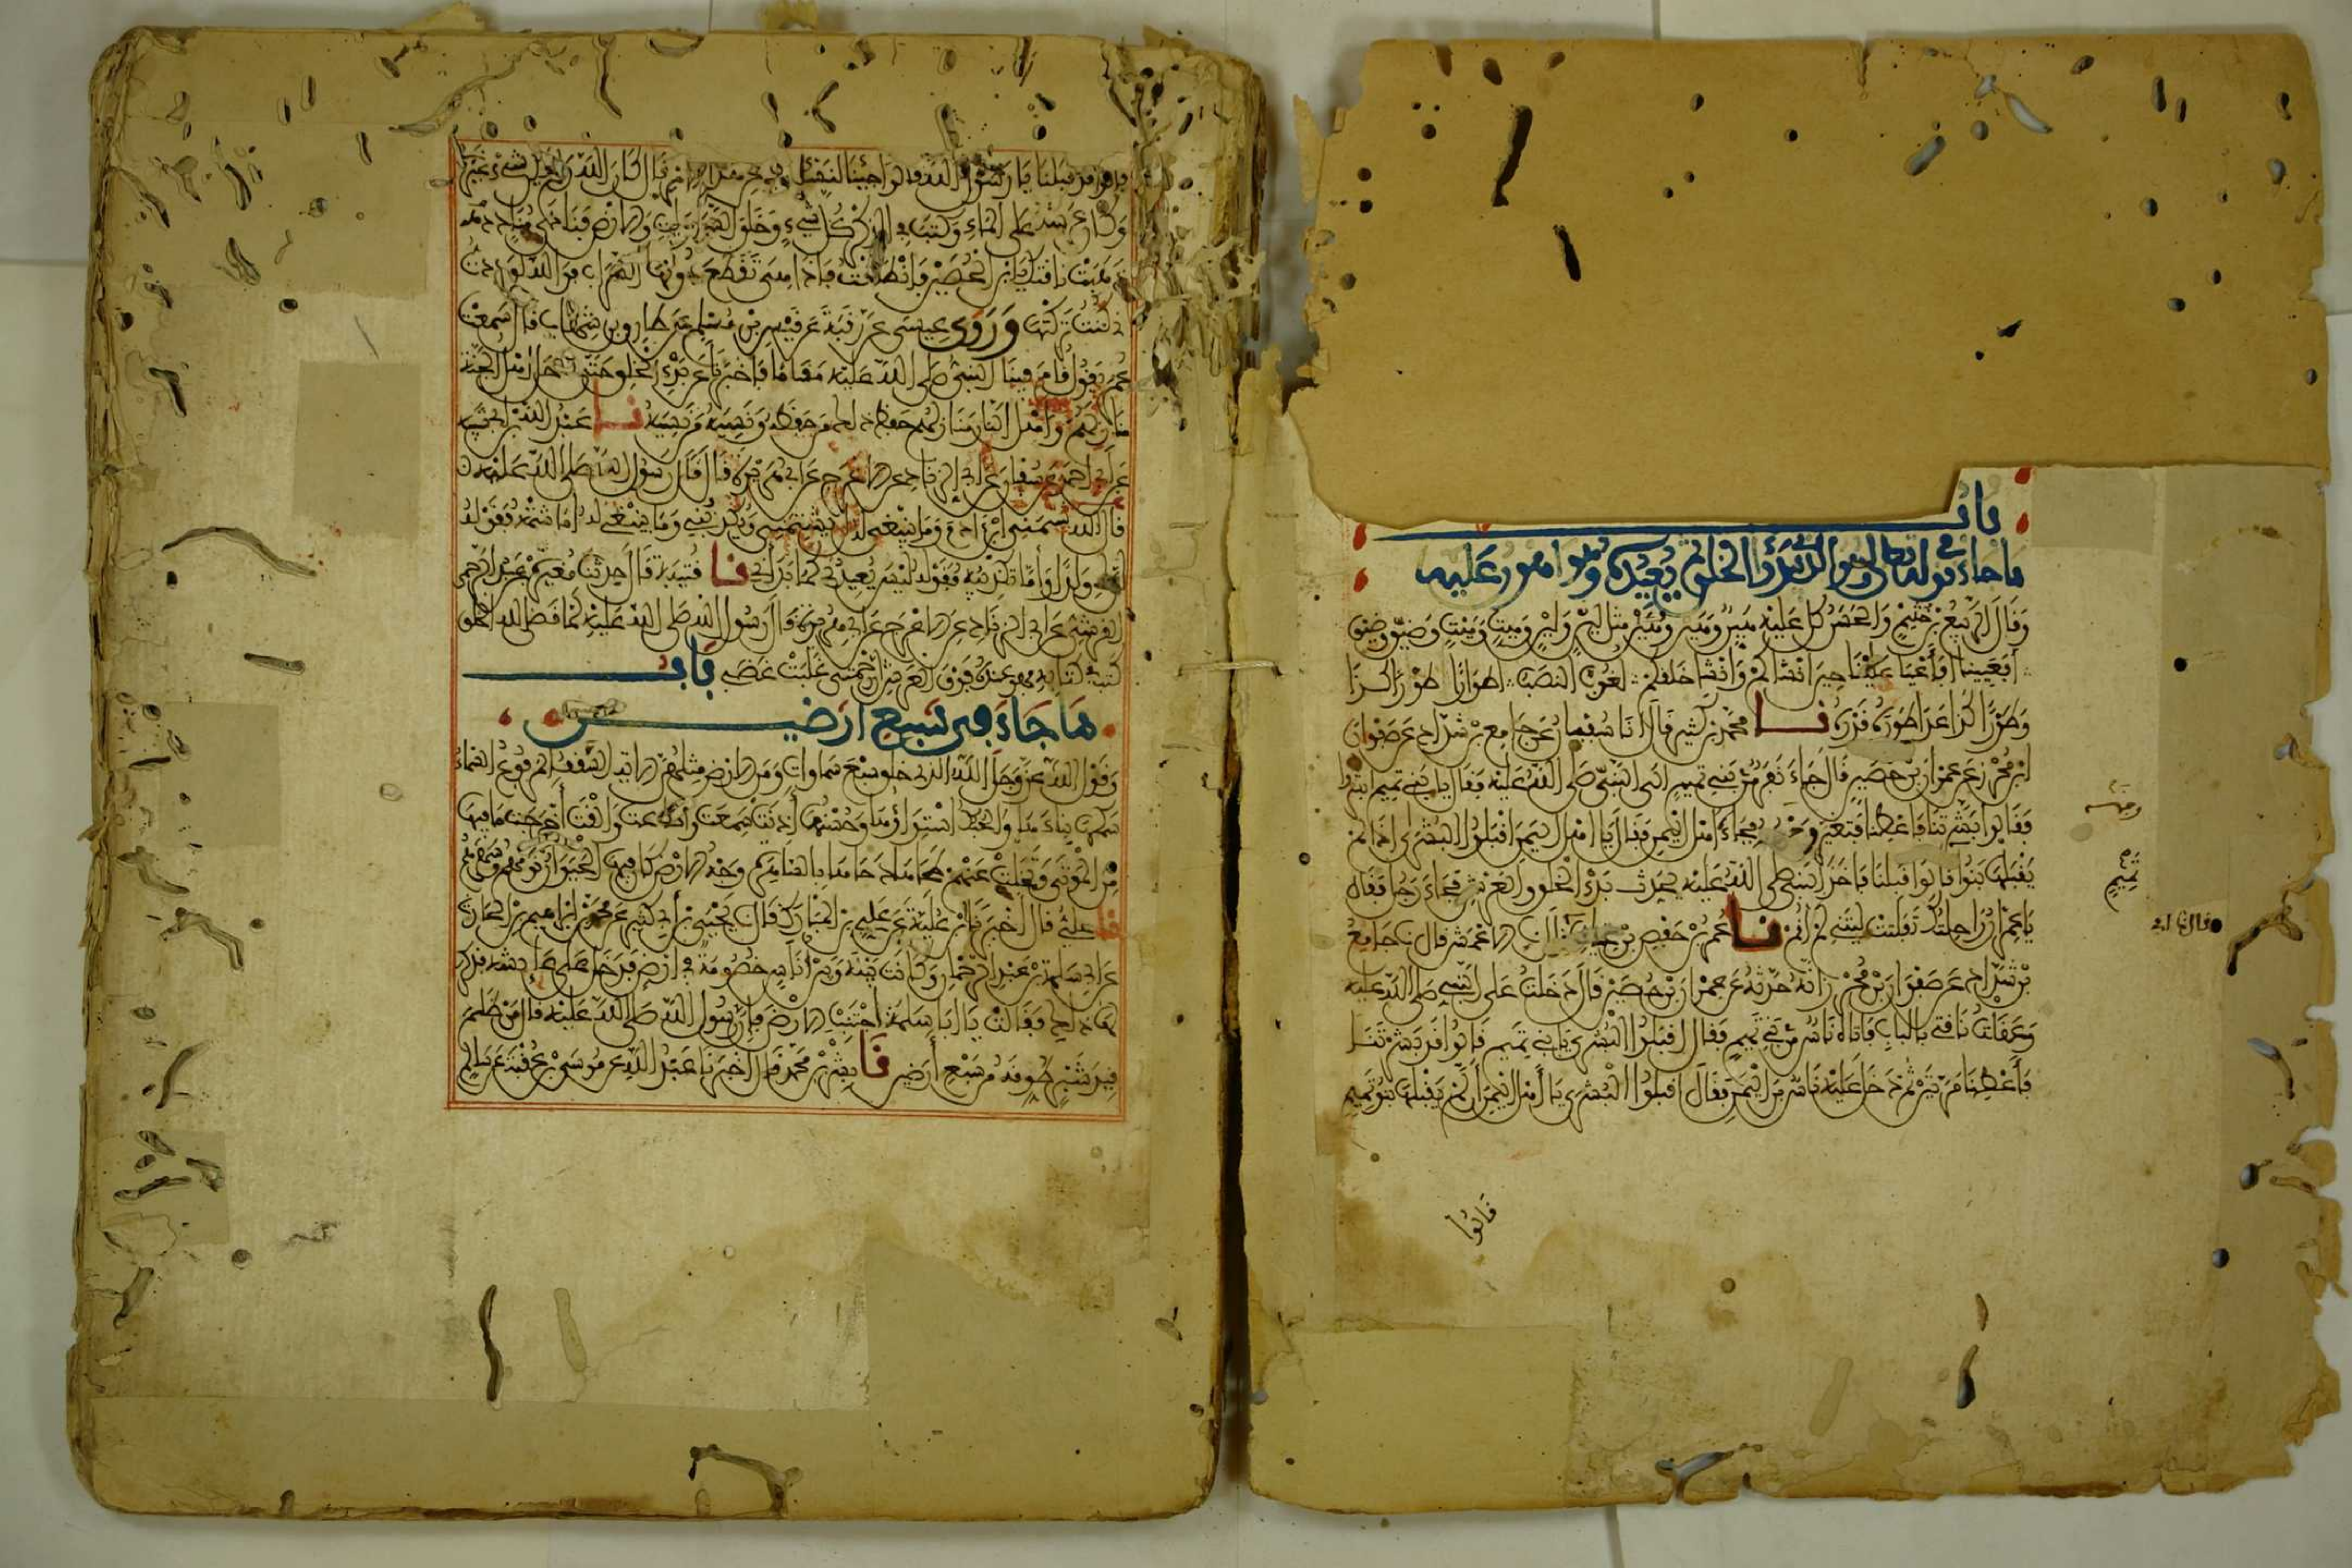 باب
ما جاء في قوله تعالى وهو الذي يبدؤا الخلق ثم يعيده وهو اهون عليه
وقال الربيع بن خثيم والحسن كل عليه هين وهين وهين مثل لين ولين وميت وميت وضيق وضيق
افعيينا افاعيا علينا حين انشاكم وانشا خلقكم لغوب النصب اطوارا طورا كذا
وطورا كذا عدا طوره قدره نا محمد بن كثير قال انا سفيان عن جامع بن شداد عن صفوان
ابن محرز عن عمران بن حصين قال جاء نفر من بني تميم الى النبي صلى الله عليه فقال يا بني تميم ابشروا
فقالوا بشرتنا فاعطنا فتغير وجهه فجاءه اهل اليمن فقال يا اهل اليمن اقبلوا البشرى اذ لم
يقبلها بنوا تميم قالوا قبلنا فاخذ النبي صلى الله عليه يحدث بدء الخلق والعرش فجاء رجل فقال
يا عمران راحلتك تفلتت ليتني لم اقم نا عمر بن حفص بن غياث نا ابي نا الاعمش قال نا جامع
بن شداد عن صفوان بن محرز انه حدثه عن عمران بن حصين قال دخلت على النبي صلى الله عليه
وعقلت ناقتي بالباب فاتاه ناس من بني تميم فقال اقبلوا البشرى يا بني تميم قالوا قد بشرتنا
فاعطنا مرتين ثم دخل عليه ناس من اليمن فقال اقبلوا البشرى يا اهل اليمن ان لم يقبلها بنو تميم
قالوا
وجهه
تميم
قال نا ابي
قالوا قد قبلنا يا رسول الله قالوا جئنا لنسئلك عن هذا الامر قال كان الله ولم يكن شيء غيره
وكان عرشه على الماء وكتب في الذكر كل شيء وخلق السموات والارض فنادى مناد
ذهبت ناقتك يا ابن الحصين فانطلقت فاذا هي تقطع دونها السراب فوالله لوددت
اني كنت تركتها وروى عيسى عن رقبة عن قيس بن مسلم عن طارق بن شهاب قال سمعت
عمر يقول قام فينا النبي صلى الله عليه مقاما فاخبرنا عن بدء الخلق حتى دخل اهل الجنة
منازلهم واهل النار منازلهم حفظ ذلك من حفظه ونسيه من نسيه نا عبد الله بن ابي شيبة
عن ابي احمد عن سفيان عن ابي الزناد عن الاعرج عن ابي هريرة قال قال رسول الله صلى الله عليه
قال الله يشتمني ابن ادم وما ينبغي له ان يشتمني ويكذبني وما ينبغي له اما شتمه فقوله
ان لي ولدا واما تكذيبه فقوله ليس يعيدني كما بداني نا قتيبة قال حدثنا مغيرة بن عبد الرحمن
القرشي عن ابي الزناد عن الاعرج عن ابي هريرة قال رسول الله صلى الله عليه لما قضى الله الخلق
كتب في كتابه فهو عنده فوق العرش ان رحمتي غلبت غضبي باب
ما جاء في سبع ارضين
وقول الله عز وجل الله الذي خلق سبع سماوات ومن الارض مثلهن الاية السقف المرفوع السماء
سمكها بناءها والحبك استواؤها وحسنها اذنت سمعت واطاعت والقت اخرجت ما فيها
من الموتى وتخلت عنهم طحاها دحاها بالساهرة وجه الارض كان فيها الحيوان نومهم وسهرهم
نا علي قال اخبرنا ابن علية عن علي بن المبارك قال نا يحيى بن ابي كثير عن محمد بن ابراهيم بن الحارث
عن ابي سلمة بن عبد الرحمان وكانت بينه وبين اناس خصومة في ارض فدخل على عائشة فذكر
لها ذلك فقالت يا ابا سلمة اجتنب الارض فان رسول الله صلى الله عليه قال من ظلم
قيد شبر طوقه من سبع ارضين نا بشر بن محمد قال اخبرنا عبد الله عن موسى بن عقبة عن سالم